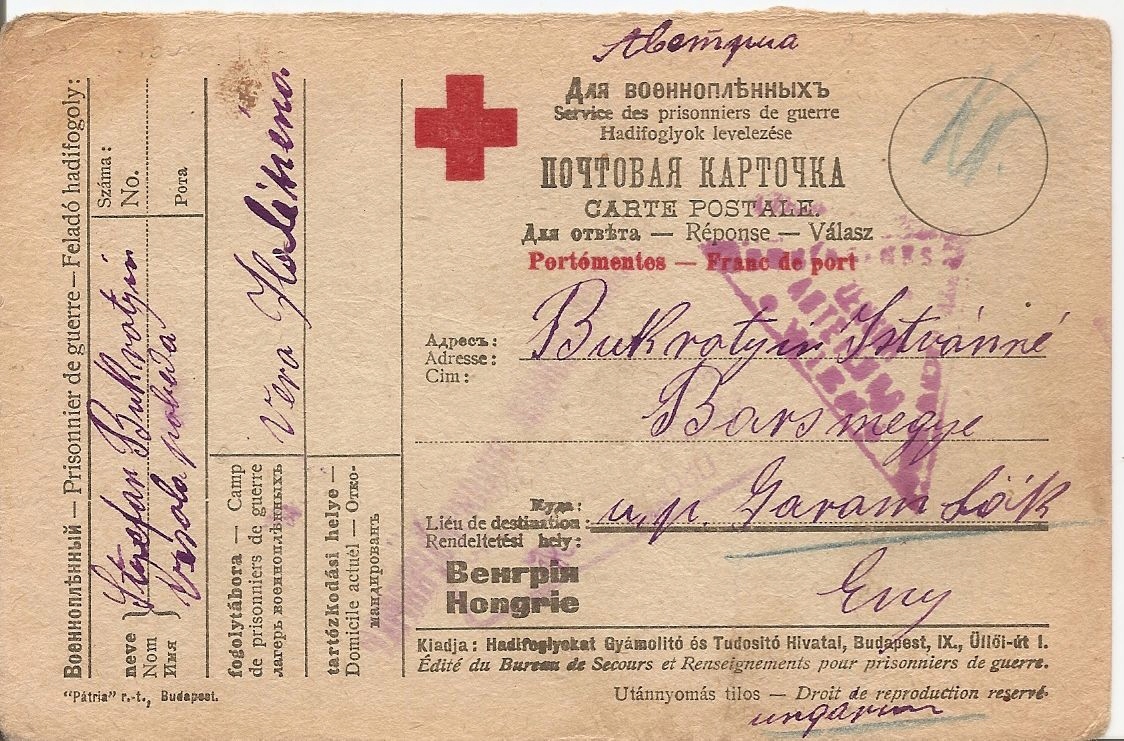 Австрия
Для военноплѣнныхъ
Service des prisonniers de guerre
Hadifoglyok levelezése
ПОЧТОВАЯ КАРТОЧКА
CARTE POSTALE.
Для отвѣта — Réponse — Válasz
Portómentes — Franc de port
Адресъ:
Adresse:
Cim:
Bukrotyin Istvánné
Barsmegye
Куда:
Liéu de destination:
Rendeltetési hely:
u. p. Garam Lök
Eny
Венгрія
Hongrie
Kiadja: Hadifoglyokat Gyámolitó és Tudositó Hivatal, Budapest, IX., Üllői-út 1.
Édité du Bureau de Secours et Renseignements pour prisonniers de guerre.
Utánnyomás tilos — Droit de reproduction reservé
ungarun
Военноплѣнный — Prisonnier de guerre — Feladó hadifogoly:
neve
Nom
Имя
Stefan Bukrotyin
Száma:
No.
Рота
fogolytábora — Camp
de prisonniers de guerre
лагерь военноплѣнныхъ
Vera
tartózkodási helye —
Domicile actuel — Отко-
мандированъ
"Pátria" r.-t., Budapest.